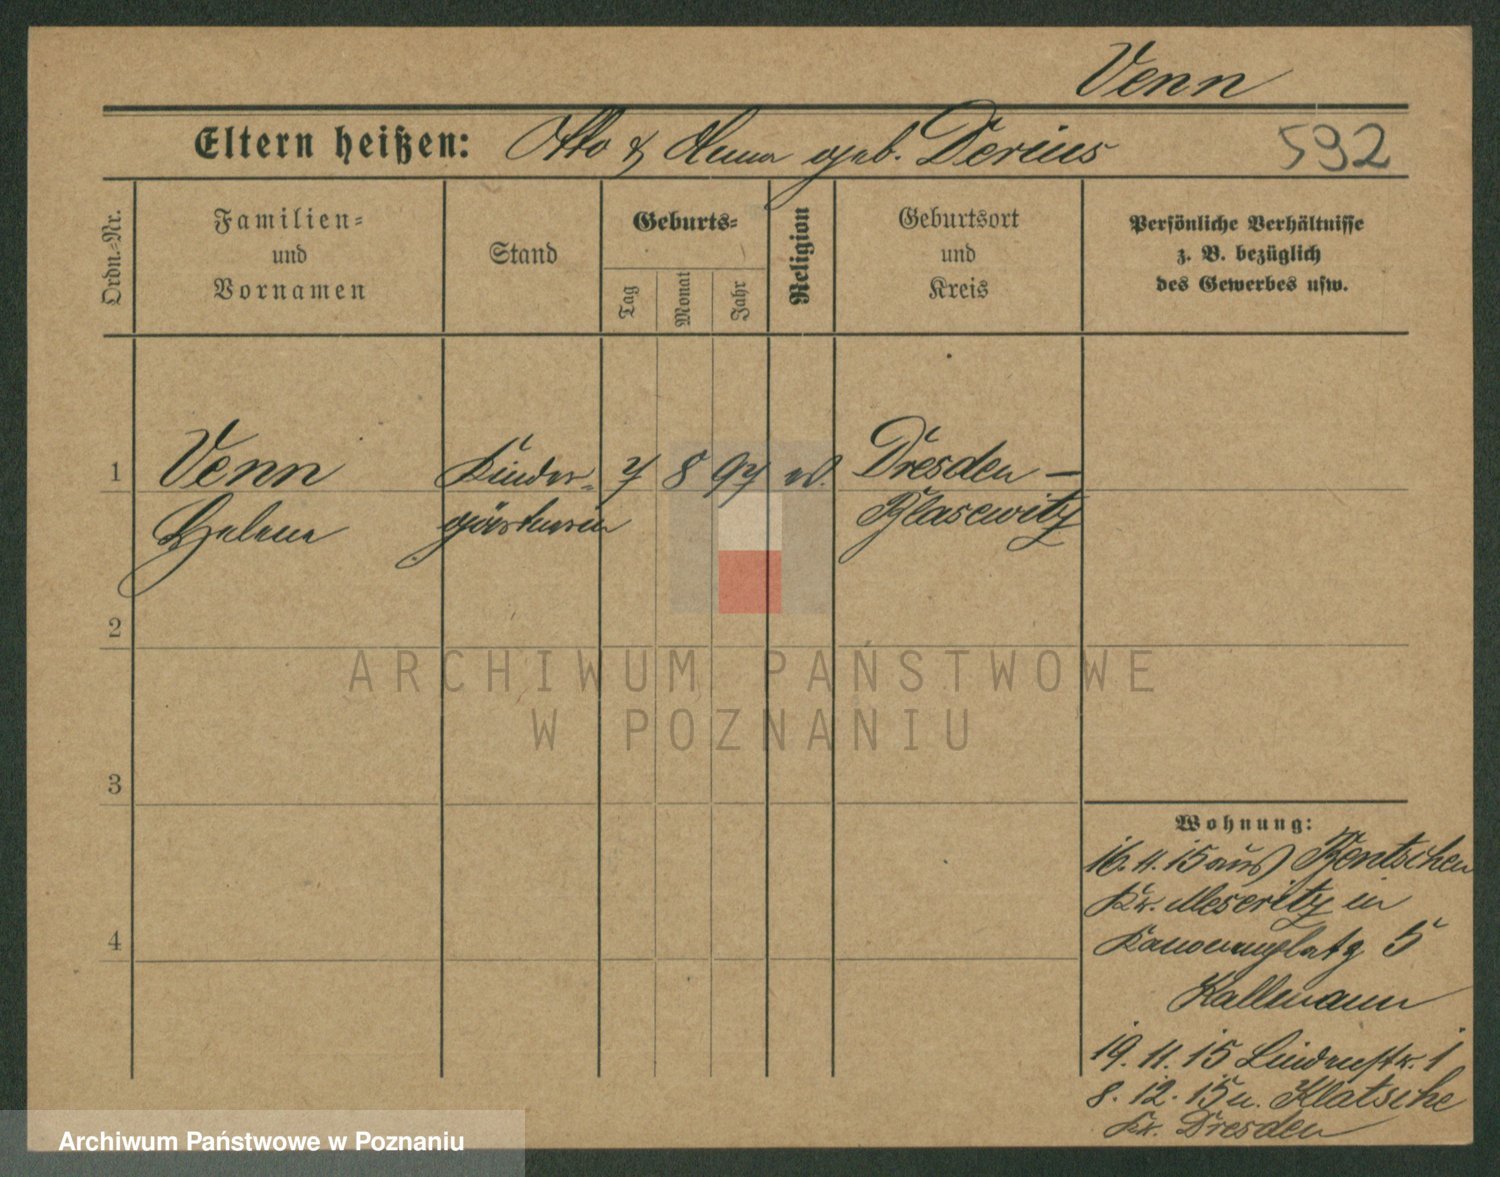 Venn
Eltern heißen: Otto & Anna geb. Derius
592
Ordn.-Nr.
Familien-
und
Vornamen
Stand
Geburts-
Tag
Monat
Jahr
Religion
Geburtsort
und
Kreis
Persönliche Verhältnisse
z. B. bezüglich
des Gewerbes usw.
1
Venn
Helene
Kinder-
gärtnerin
7 8 97
Dresden –
Blasewitz
2
ARCHIWUM PAŃSTWOWE
W POZNANIU
3
4
Wohnung:
16.11.15 aus Bentschen
Kr. Meseritz in
5
Kallmann
19.11.15 Lindenstr. 1
8.12.15 n. Klotsche
Kr. Dresden
Archiwum Państwowe w Poznaniu